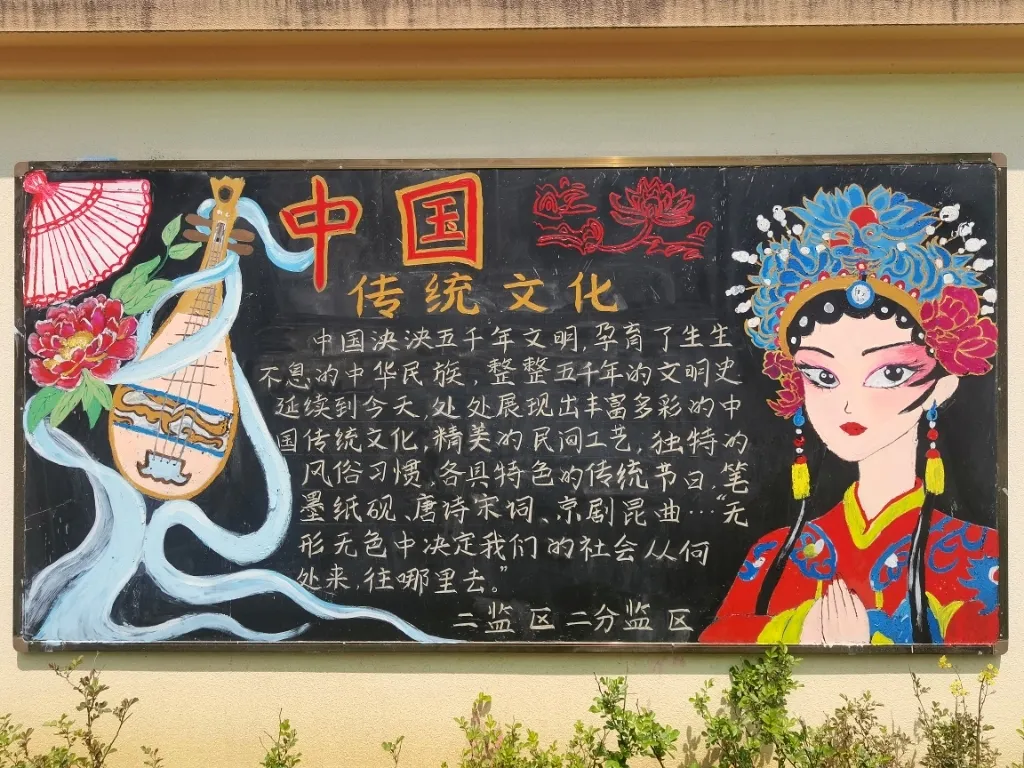 中国
传统文化
中国泱泱五千年文明,孕育了生生
不息的中华民族,整整五千年的文明史
延续到今天,处处展现出丰富多彩的中
国传统文化,精美的民间工艺,独特的
风俗习惯,各具特色的传统节日,笔
墨纸砚、唐诗宋词、京剧昆曲…“无
形无色中决定我们的社会从何
处来,往哪里去。”
二监区二分监区